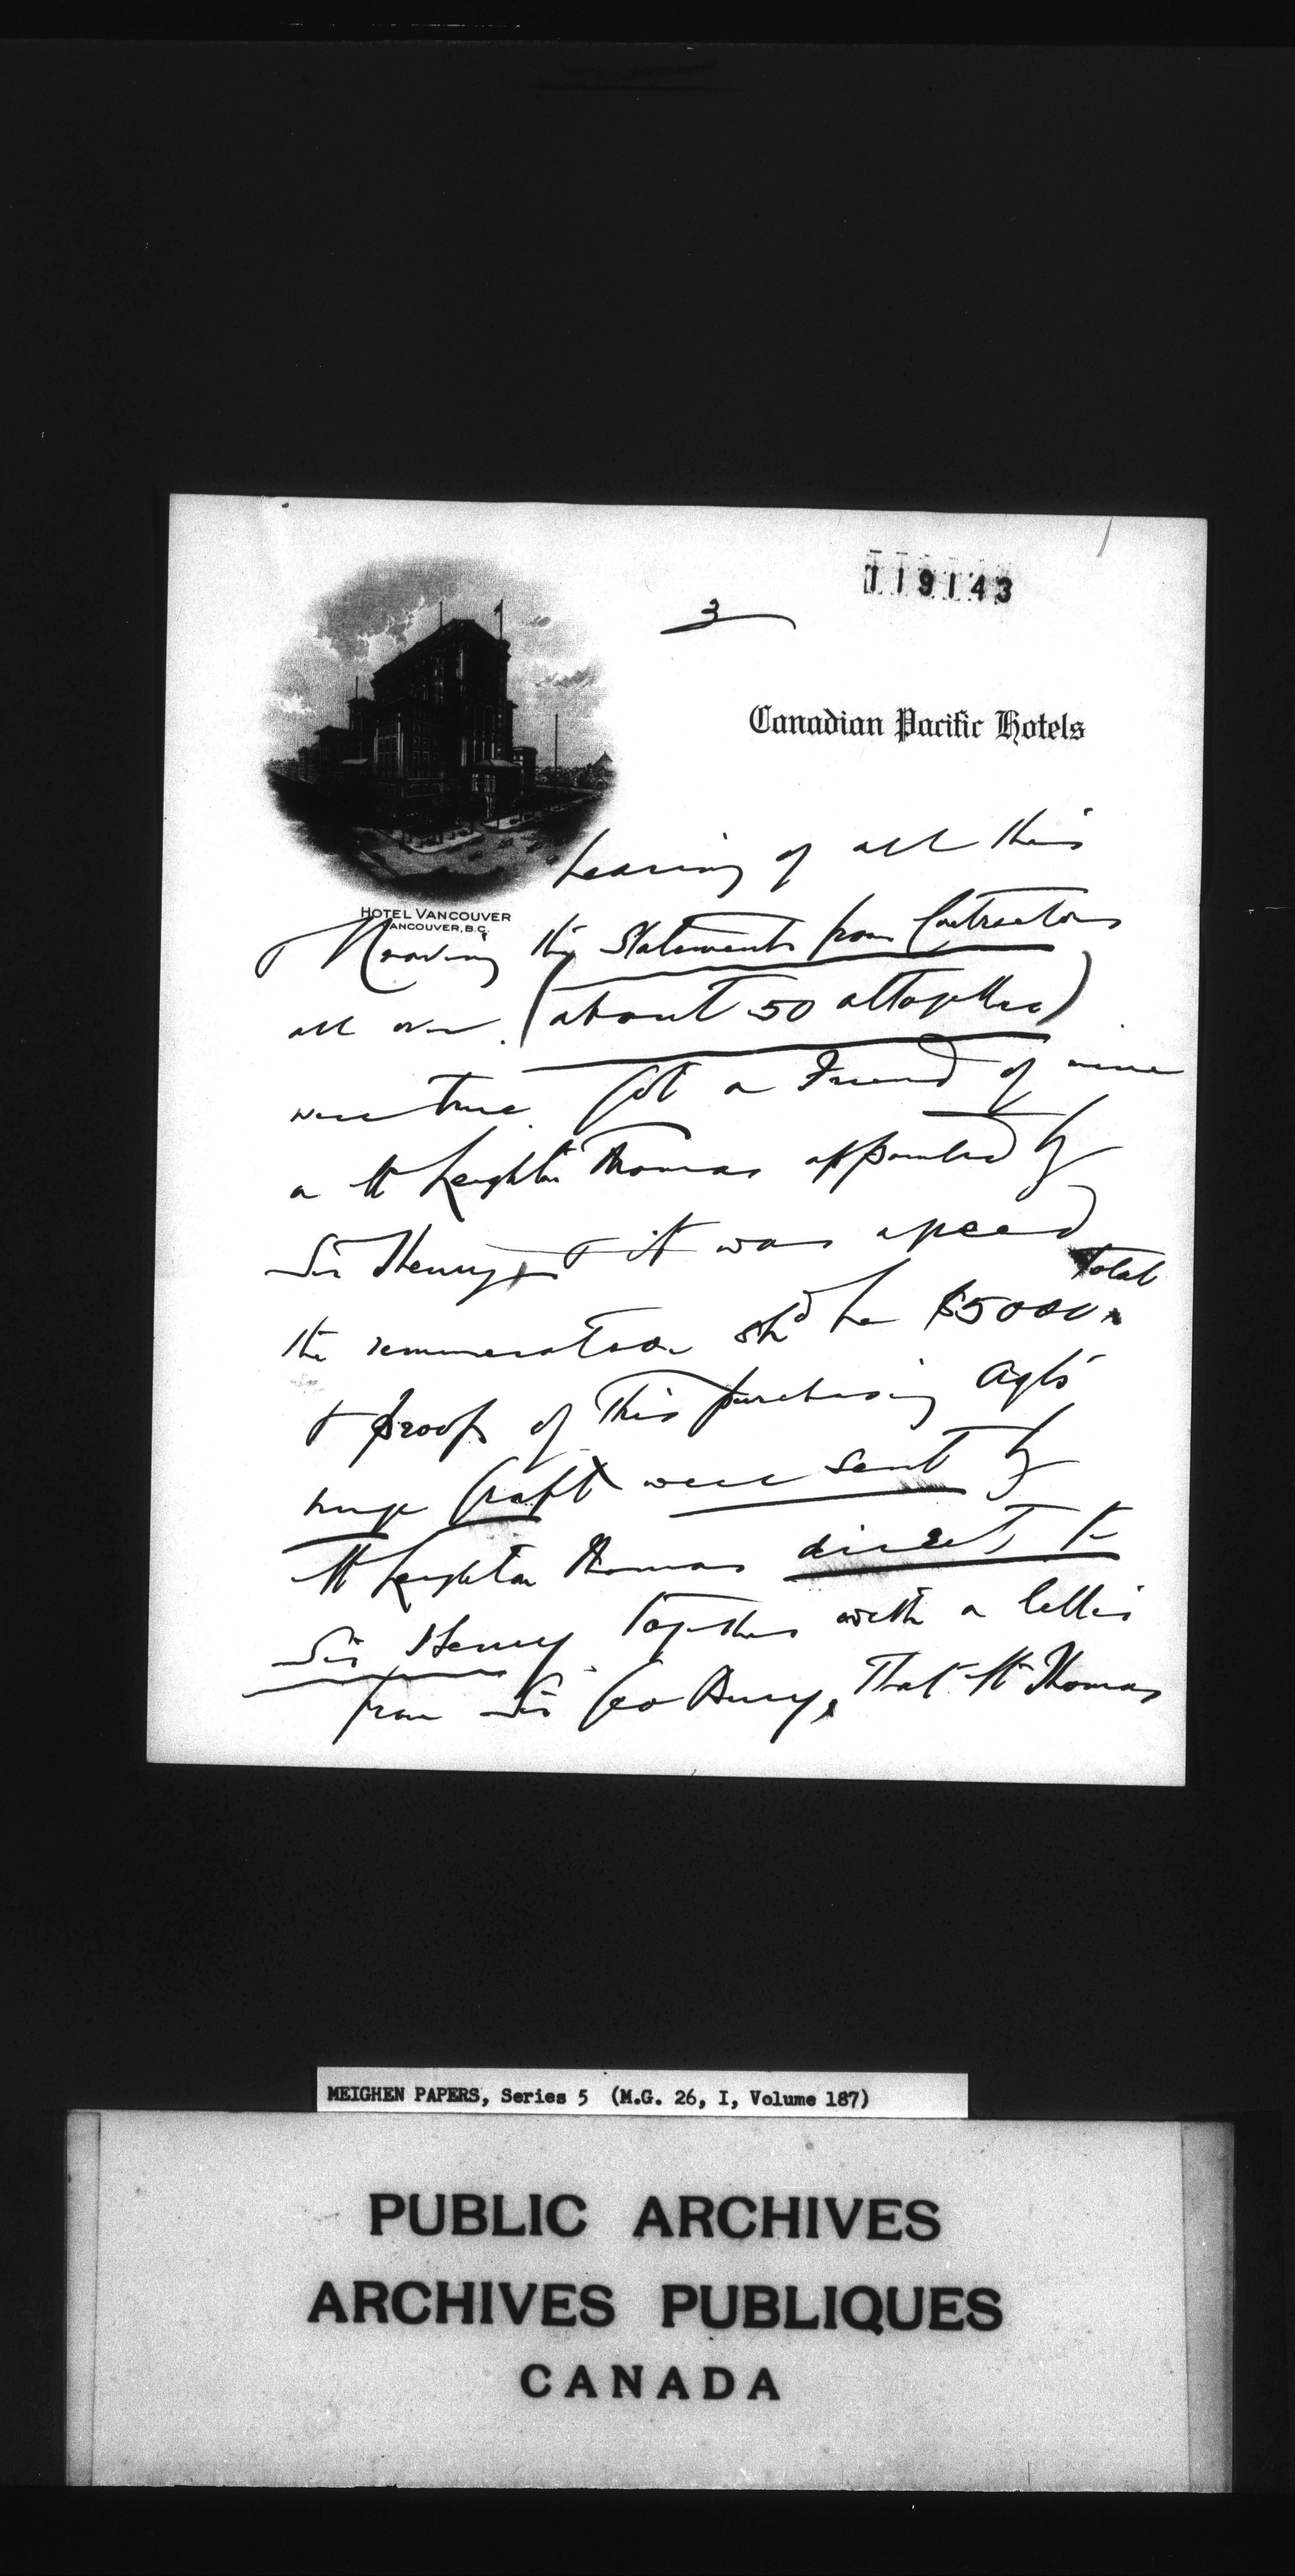 119143
3
Canadian Pacific Hotels
HOTEL VANCOUVER
VANCOUVER, B.C.
hearing of all this
& Knowing the Statements from Contractors
all over. (about 50 altogether)
were true. Got a Friend of mine
a Mr Leighton Thomas appointed by
Sir Henry & it was agreed
Total
the remuneration shd be $5000
& proofs of this purchasing Agts
huge Graft were sent by
Mr Leighton Thomas direct to
Sir Henry. Together with a letter
from Sir Geo Bury, That Mr Thomas
MEIGHEN PAPERS, Series 5 (M.G. 26, I, Volume 187)
PUBLIC ARCHIVES
ARCHIVES PUBLIQUES
CANADA